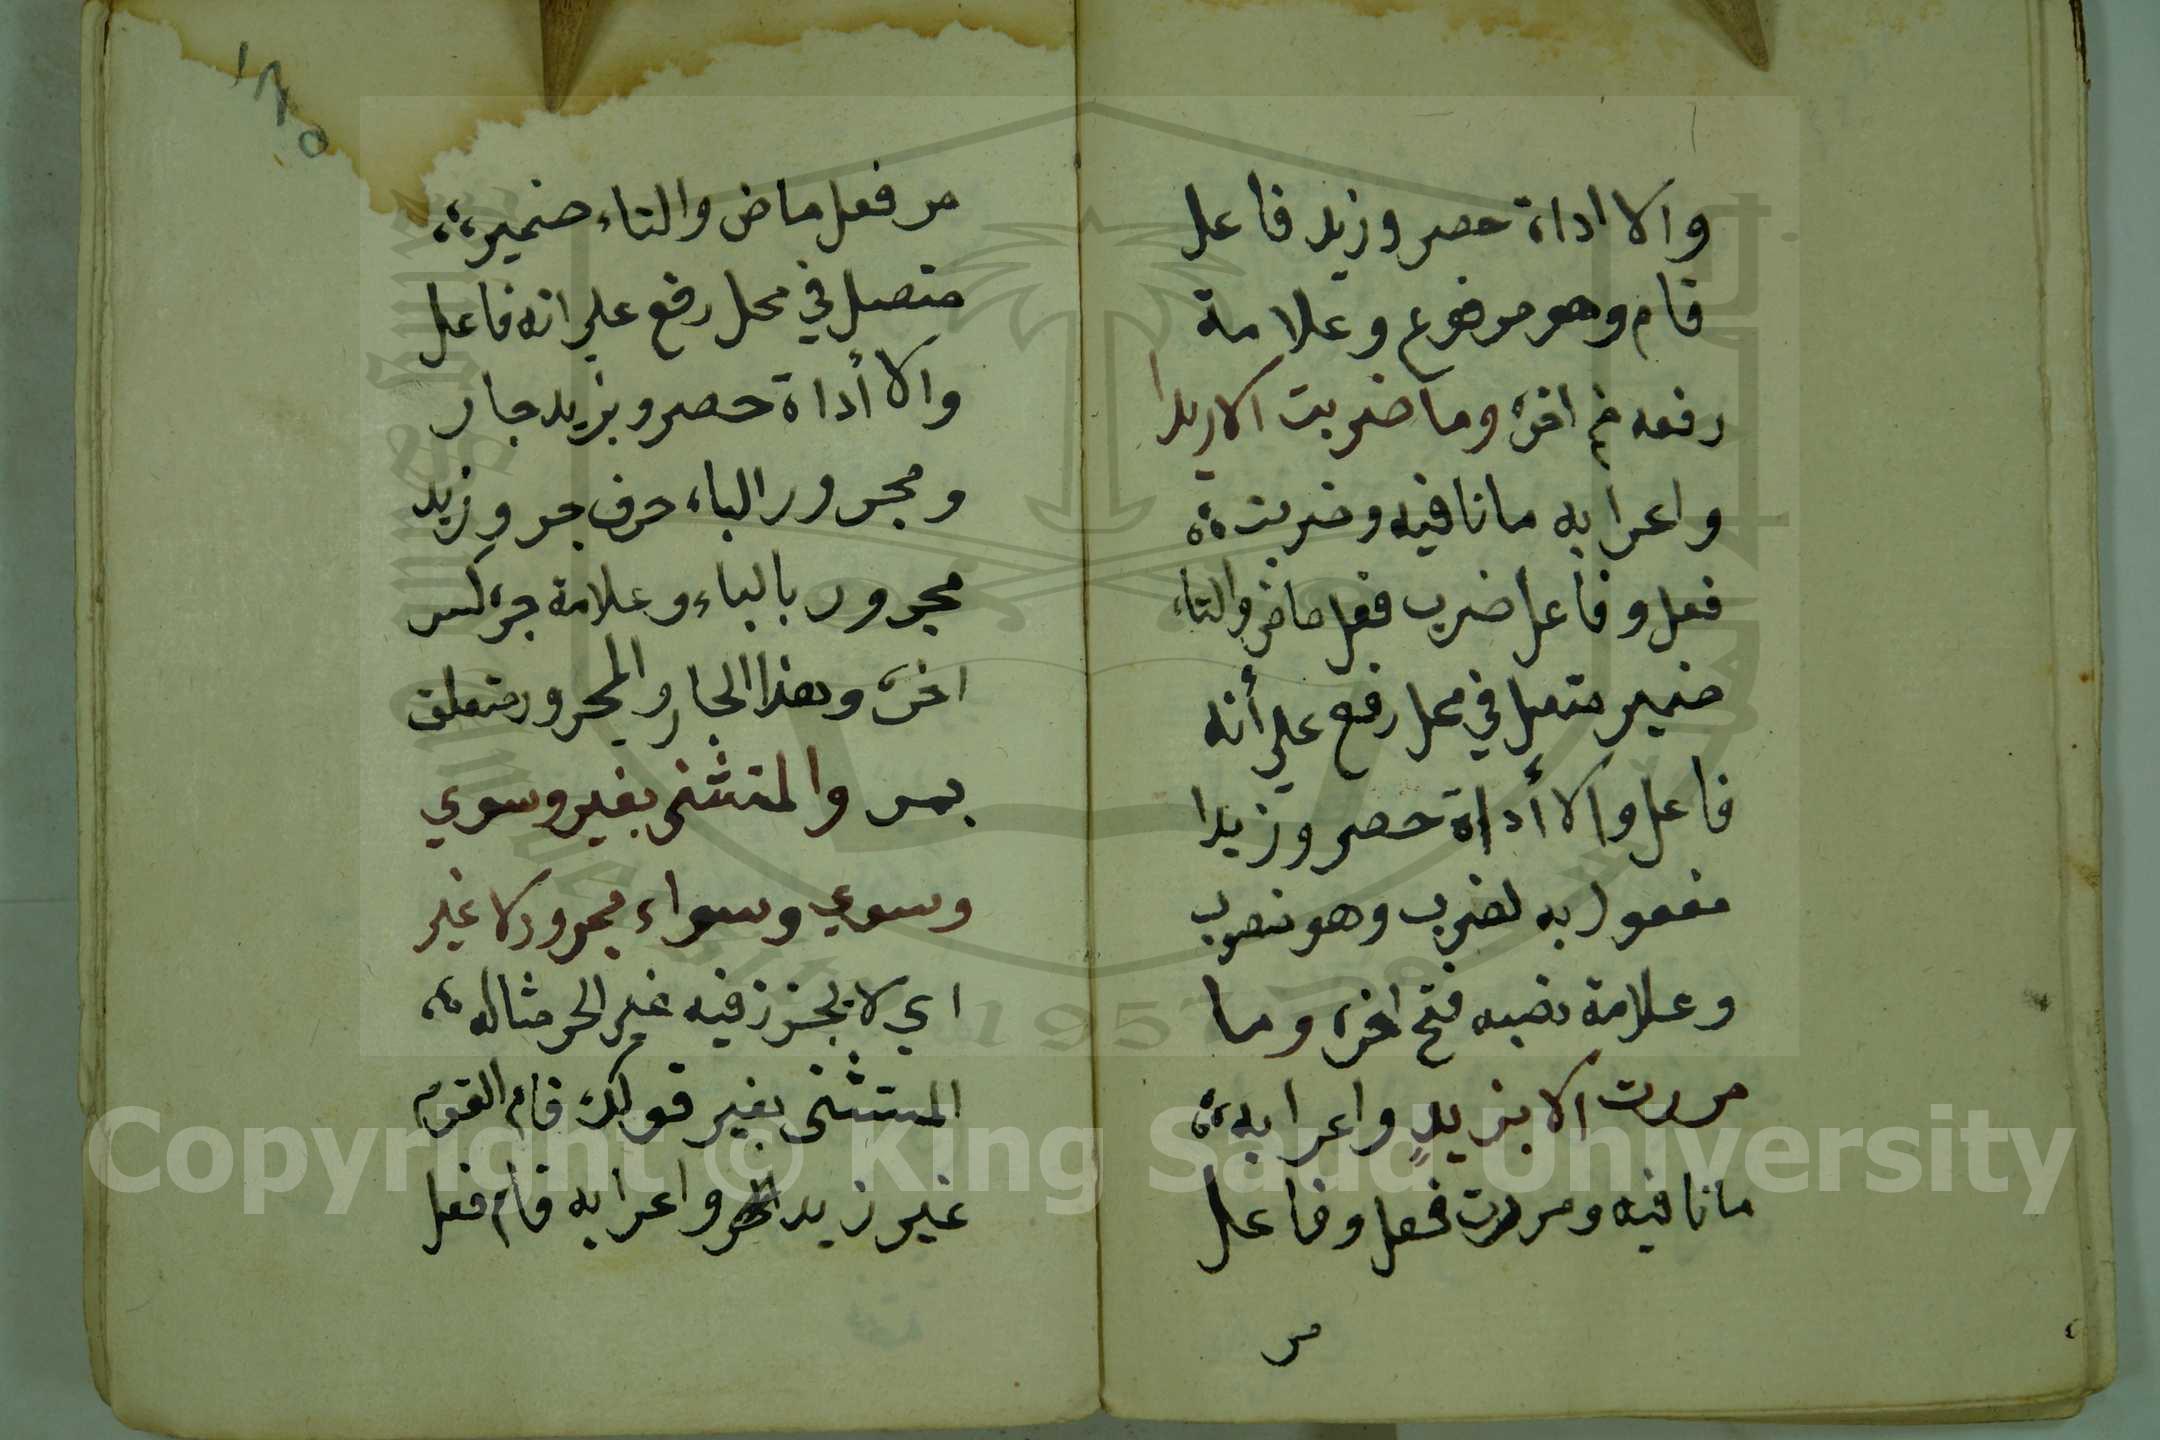 والا اداة حصر وزيد فاعل
قام وهو مرفوع وعلامة
رفعه ضم اخره وما ضربت الا زيدا
واعرابه ما نافيه وضربت
فعل وفاعل ضرب فعل ماض والتاء
ضمير متصل في محل رفع علي أنه
فاعل والا أداة حصر وزيدا
مفعول به لضرب وهو منصوب
وعلامة نصبه فتح اخره وما
مررت الا بزيدٍ واعرابه
ما نافيه ومررت فعل وفاعل
مر
١٢٥
مر فعل ماض والتاء ضمير
متصل في محل رفع علي انه فاعل
والا أداة حصر وبزيد جار
ومجرور الباء حرف جر وزيد
مجرور بالباء وعلامة جره كسر
اخره وهذا الجار والمجرور متعلق
بمر والمتثنى بغير وسوي
وسوي وسواء مجرور لا غير
اي لا يجز فيه غير الجر مثاله
المستثنى بغير قولك قام القوم
غير زيد واعرابه قام فعل
Copyright © King Saud University
1957